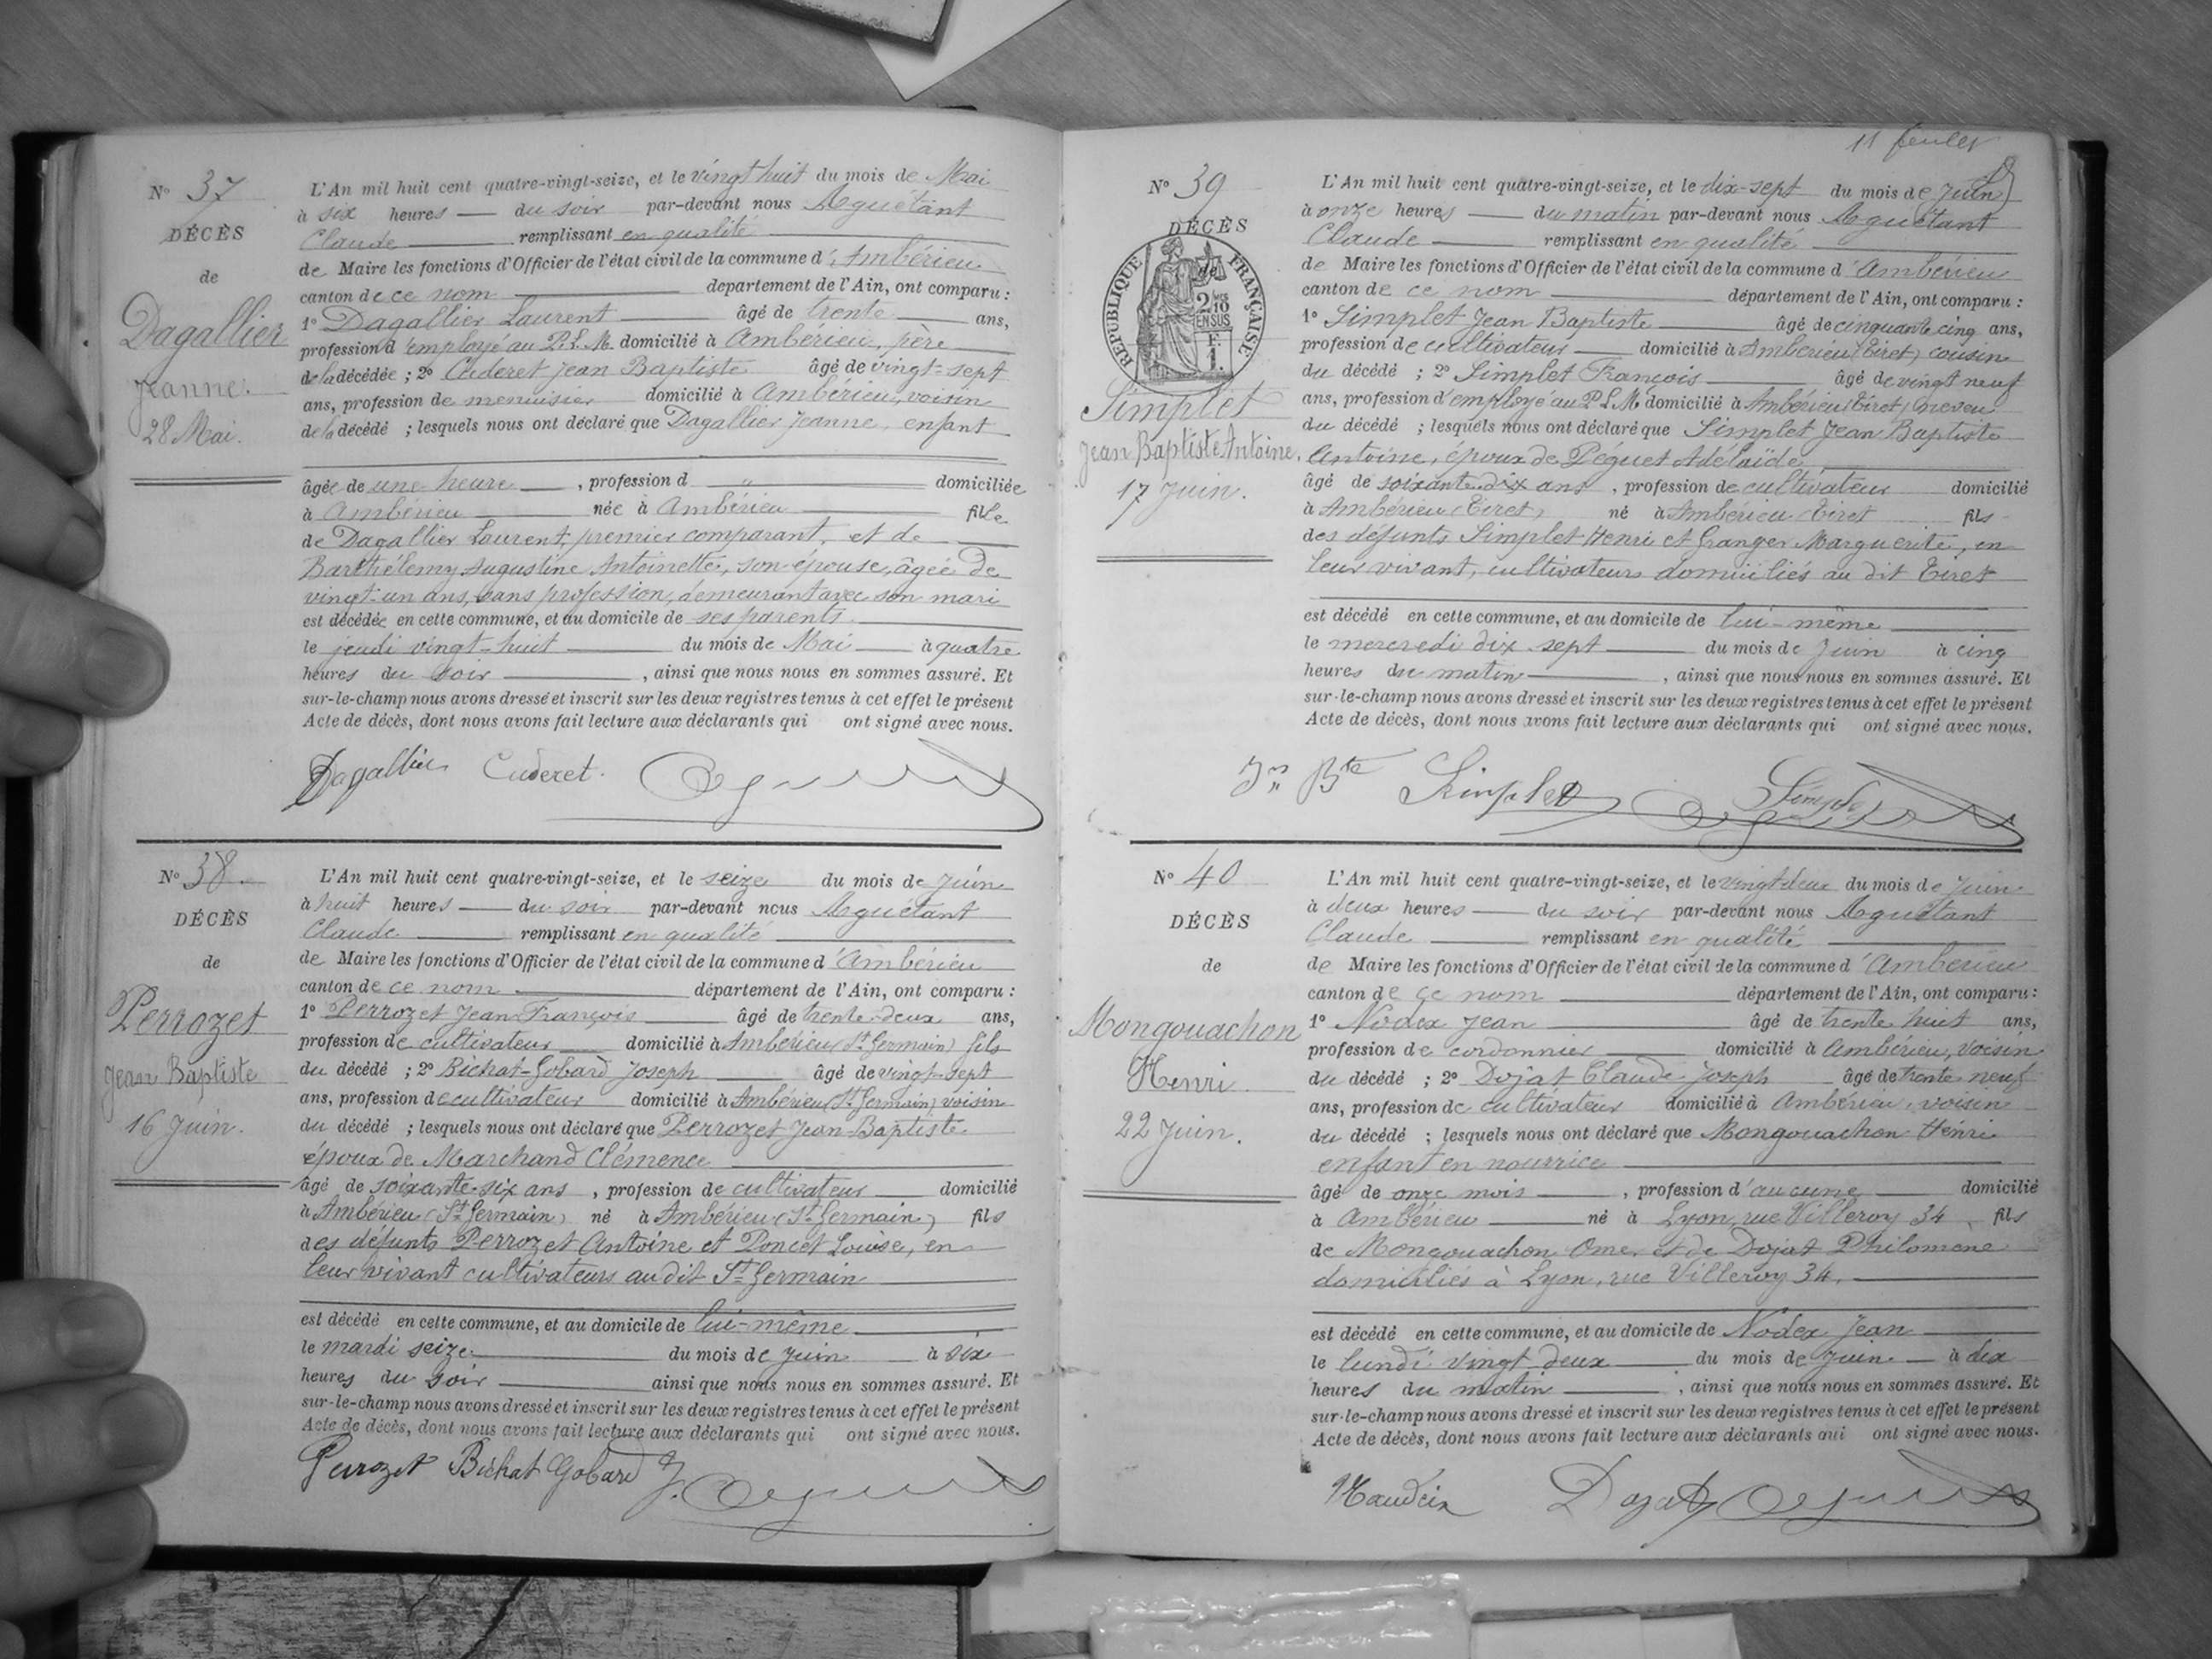 N° 37
DÉCÈS
de
Dagallier
Jeanne.
28 Mai.
L'An mil huit cent quatre-vingt-seize, et le vingt huit du mois de Mai
à six heures du soir par-devant nous Aguétant
Claude remplissant en qualité
de Maire les fonctions d'Officier de l'état civil de la commune d'Ambérieu
canton de ce nom département de l'Ain, ont comparu :
1° Dagallier Laurent âgé de trente ans,
profession d'employé au P.L.M. domicilié à Ambérieu, père
de la décédée ; 2° Cuderet Jean Baptiste âgé de vingt-sept
ans, profession de menuisier domicilié à Ambérieu, voisin
de la décédé ; lesquels nous ont déclaré que Dagallier Jeanne, enfant
âgée de une heure , profession d " domiciliée
à Ambérieu née à Ambérieu fille
de Dagallier Laurent, premier comparant, et de
Barthélemy Augustine Antoinette, son épouse, âgée de
vingt-un ans, sans profession, demeurant avec son mari
est décédée en cette commune, et au domicile de ses parents
le jeudi vingt-huit du mois de Mai à quatre
heures du soir , ainsi que nous nous en sommes assuré. Et
sur-le-champ nous avons dressé et inscrit sur les deux registres tenus à cet effet le présent
Acte de décès, dont nous avons fait lecture aux déclarants qui ont signé avec nous.
Dagallier Cuderet.
N° 38.
DÉCÈS
de
Perrozet
Jean Baptiste
16 Juin.
L'An mil huit cent quatre-vingt-seize, et le seize du mois de Juin
à huit heures du soir par-devant nous Aguétant
Claude remplissant en qualité
de Maire les fonctions d'Officier de l'état civil de la commune d'Ambérieu
canton de ce nom département de l'Ain, ont comparu :
1° Perrozet Jean François âgé de trente-deux ans,
profession de cultivateur domicilié à Ambérieu (St Germain) fils
du décédé ; 2° Bichat-Gobard Joseph âgé de vingt-sept
ans, profession de cultivateur domicilié à Ambérieu (St Germain) voisin
du décédé ; lesquels nous ont déclaré que Perrozet Jean-Baptiste
époux de Marchand Clémence
âgé de soixante-six ans , profession de cultivateur domicilié
à Ambérieu (St Germain) né à Ambérieu (St Germain) fils
des défunts Perrozet Antoine et Poncet Louise, en
leur vivant cultivateurs au dit St Germain
est décédé en cette commune, et au domicile de lui-même
le mardi seize du mois de Juin à six
heures du soir ainsi que nous nous en sommes assuré. Et
sur-le-champ nous avons dressé et inscrit sur les deux registres tenus à cet effet le présent
Acte de décès, dont nous avons fait lecture aux déclarants qui ont signé avec nous.
Perrozet Bichat Gobard J.
N° 39
DÉCÈS
de
RÉPUBLIQUE FRANÇAISE
2/10 EN SUS
F. 1.
Simplet
Jean Baptiste Antoine.
17 Juin.
11 feuillet
L'An mil huit cent quatre-vingt-seize, et le dix-sept du mois de Juin
à onze heures du matin par-devant nous Aguétant
Claude remplissant en qualité
de Maire les fonctions d'Officier de l'état civil de la commune d'Ambérieu
canton de ce nom département de l'Ain, ont comparu :
1° Simplet Jean Baptiste âgé de cinquante cinq ans,
profession de cultivateur domicilié à Ambérieu (Tiret) cousin
du décédé ; 2° Simplet François âgé de vingt neuf
ans, profession d'employé au P.L.M. domicilié à Ambérieu (Tiret) neveu
du décédé ; lesquels nous ont déclaré que Simplet Jean Baptiste
Antoine, époux de Péguet Adélaïde,
âgé de soixante dix ans , profession de cultivateur domicilié
à Ambérieu (Tiret) né à Ambérieu (Tiret fils
des défunts Simplet Henri et Granger Marguerite, en
leur vivant, cultivateurs domiciliés au dit Tiret
est décédé en cette commune, et au domicile de lui-même
le mercredi dix-sept du mois de Juin à cinq
heures du matin , ainsi que nous nous en sommes assuré. Et
sur-le-champ nous avons dressé et inscrit sur les deux registres tenus à cet effet le présent
Acte de décès, dont nous avons fait lecture aux déclarants qui ont signé avec nous.
Jn Bte Simplet Simplet
N° 40
DÉCÈS
de
Mongouachon
Henri
22 Juin.
L'An mil huit cent quatre-vingt-seize, et le vingt deux du mois de Juin
à deux heures du soir par-devant nous Aguétant
Claude remplissant en qualité
de Maire les fonctions d'Officier de l'état civil de la commune d'Ambérieu
canton de ce nom département de l'Ain, ont comparu :
1° Nodex Jean âgé de trente huit ans,
profession de cordonnier domicilié à Ambérieu, voisin
du décédé ; 2° Dojat Claude Joseph âgé de trente neuf
ans, profession de cultivateur domicilié à Ambérieu, voisin
du décédé ; lesquels nous ont déclaré que Mongouachon Henri
enfant en nourrice
âgé de onze mois , profession d'aucune domicilié
à Ambérieu né à Lyon, rue Villeroy 34, fils
de Mongouachon Omer et de Dojat Philomène
domiciliés à Lyon, rue Villeroy 34.
est décédé en cette commune, et au domicile de Nodex Jean
le lundi vingt deux du mois de Juin à dix
heures du matin , ainsi que nous nous en sommes assuré. Et
sur-le-champ nous avons dressé et inscrit sur les deux registres tenus à cet effet le présent
Acte de décès, dont nous avons fait lecture aux déclarants qui ont signé avec nous.
Dojat